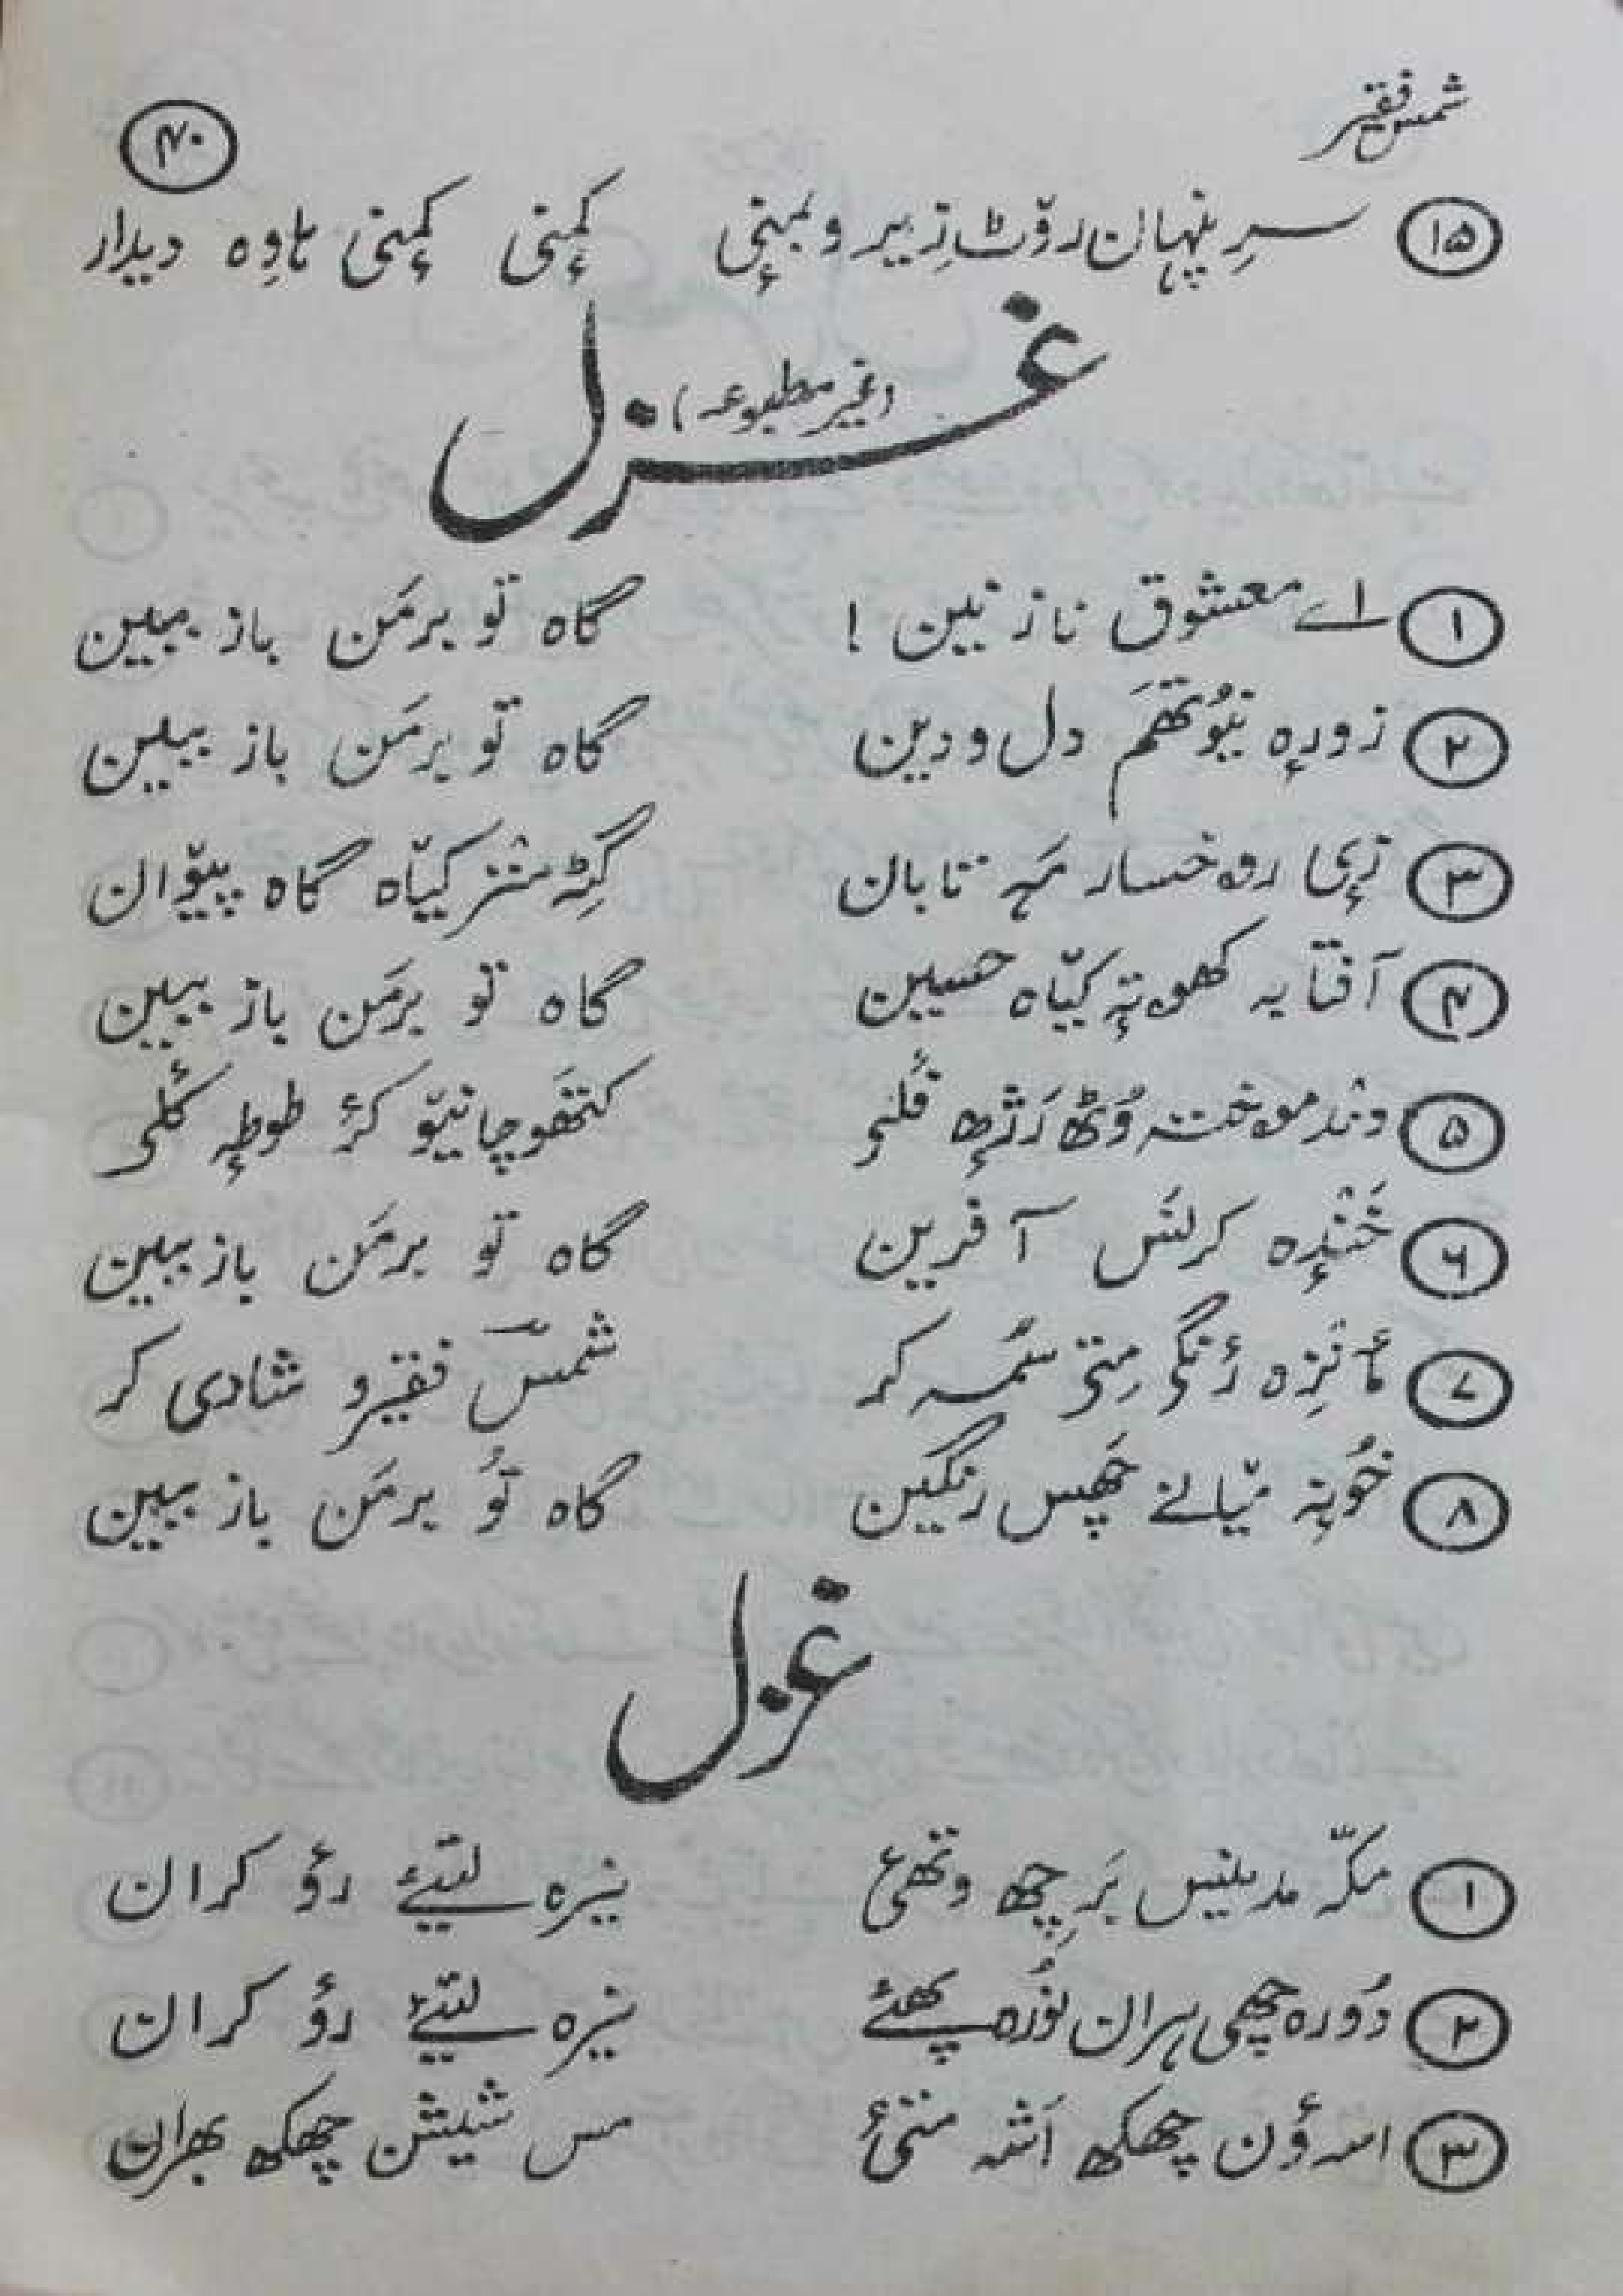 شمس فقیر
۴۰
۱۵ سرِ پنہان روٚٹ زِیر و بمٕی کٔمۍ کٔمۍ ہاوِہ دیدار
غزل
(غیر مطبوعہ)
۱ اے معشوق نازنین ! گاہ تو برمَن باز ببین
۲ زورٕہ نیوٗتھَم دل و دین گاہ تو برمَن باز ببین
۳ زٕی رۄخسار مَہہ تابان گَٹہِ منٛز کیّاہ گاہ پیوٚان
۴ آفتابہ کھۄتہٕ کیّاہ حسین گاہ تو برمَن باز ببین
۵ وندمۄختہ وُٹھ رَژٕھ قُلی کتھَو چانیوٚ کرٔ طوطہٕ کُلی
۶ خَنٛدٕہ کرلسَ آفرین گاہ تو برمَن باز ببین
۷ مٔانٛزِہ رٔنگی مٕتۍ سُمہ کر شمسؔ فقیرو شادی کر
۸ خوٗنہٕ میّانے چَھِس رنگین گاہ توُ برمَن باز ببین
غزل
۱ مکّہ مدینس بَر چِھ وتھی نیرہ لتیےٚ رؤ کران
۲ دوٗرہ چھی ہران نوٗرہ پھیٔے نیرہ لتیےٚ رؤ کران
۳ اسہ ؤن چھکھ اَشہ متیٔ مس شیشن چھکھ بھران